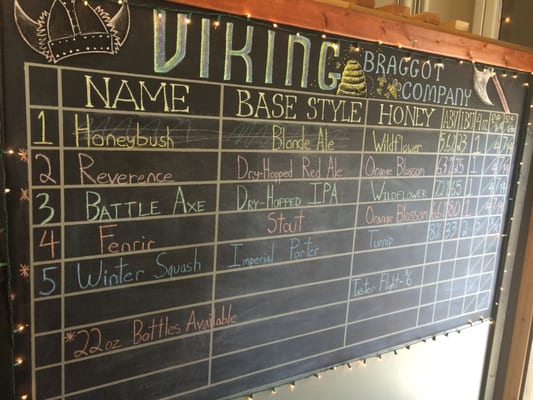 VIKING BRAGGOT COMPANY
NAME BASE STYLE HONEY ABV IBU
1 Honeybush Blonde Ale Wildflower
2 Reverence Dry-Hopped Red Ale Orange Blossom
3 Battle Axe Dry-Hopped IPA Wildflower
4 Fenrir Stout Orange Blossom
5 Winter Squash Imperial Porter Turnip
Taster Flight-6
*22oz Bottles Available